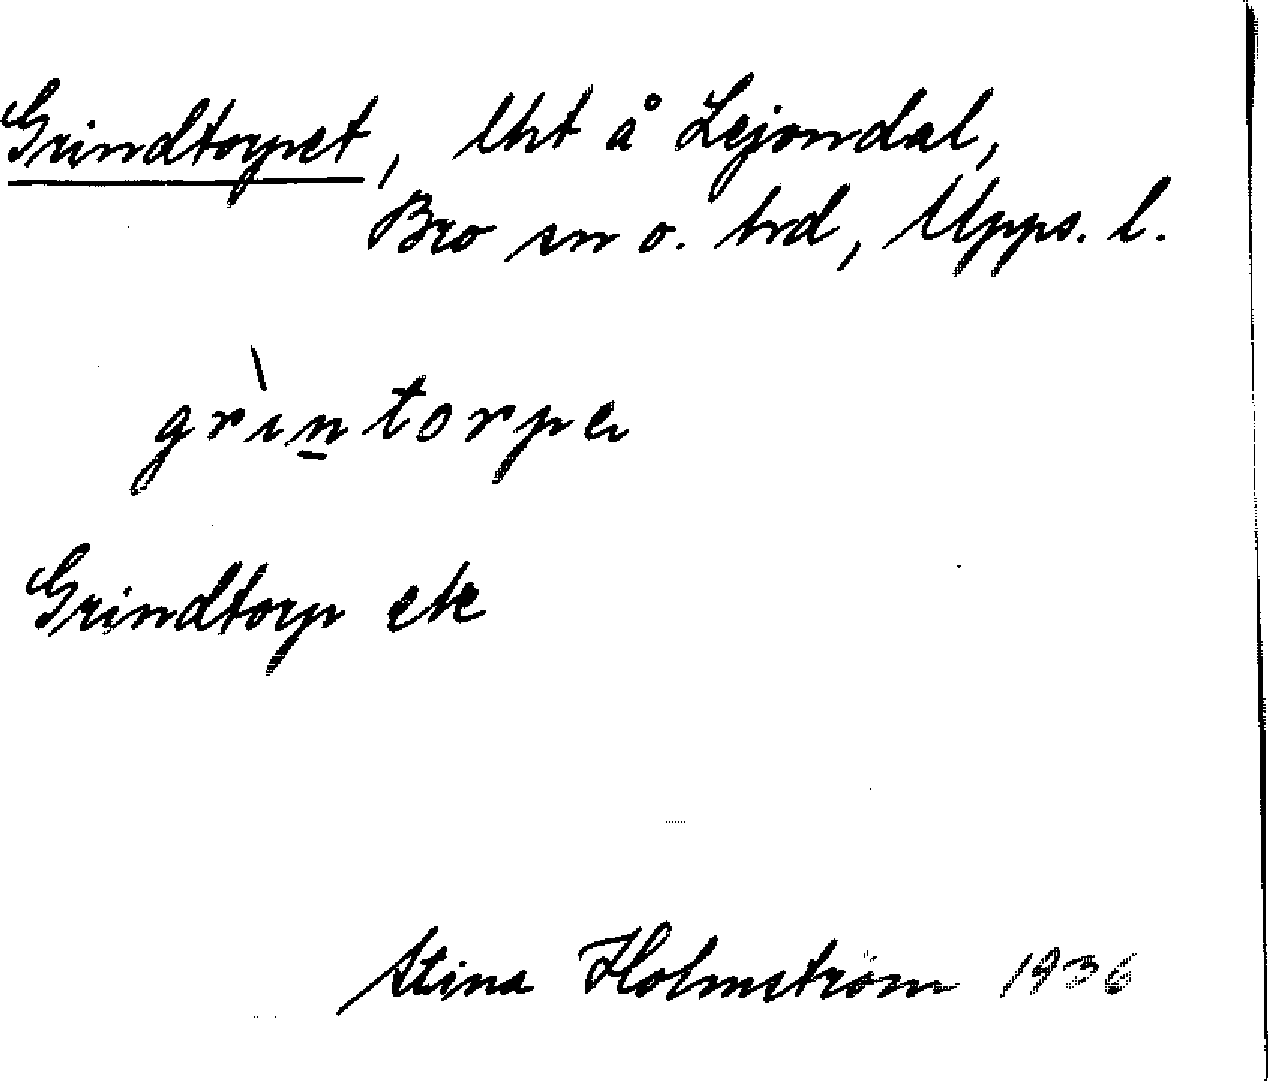 Grindtorpet, Uht å Lejondal,
Bro sn o. hd, Upps. l.
grìn̲torpe
Grindtorp etc
Stina Holmström 1936